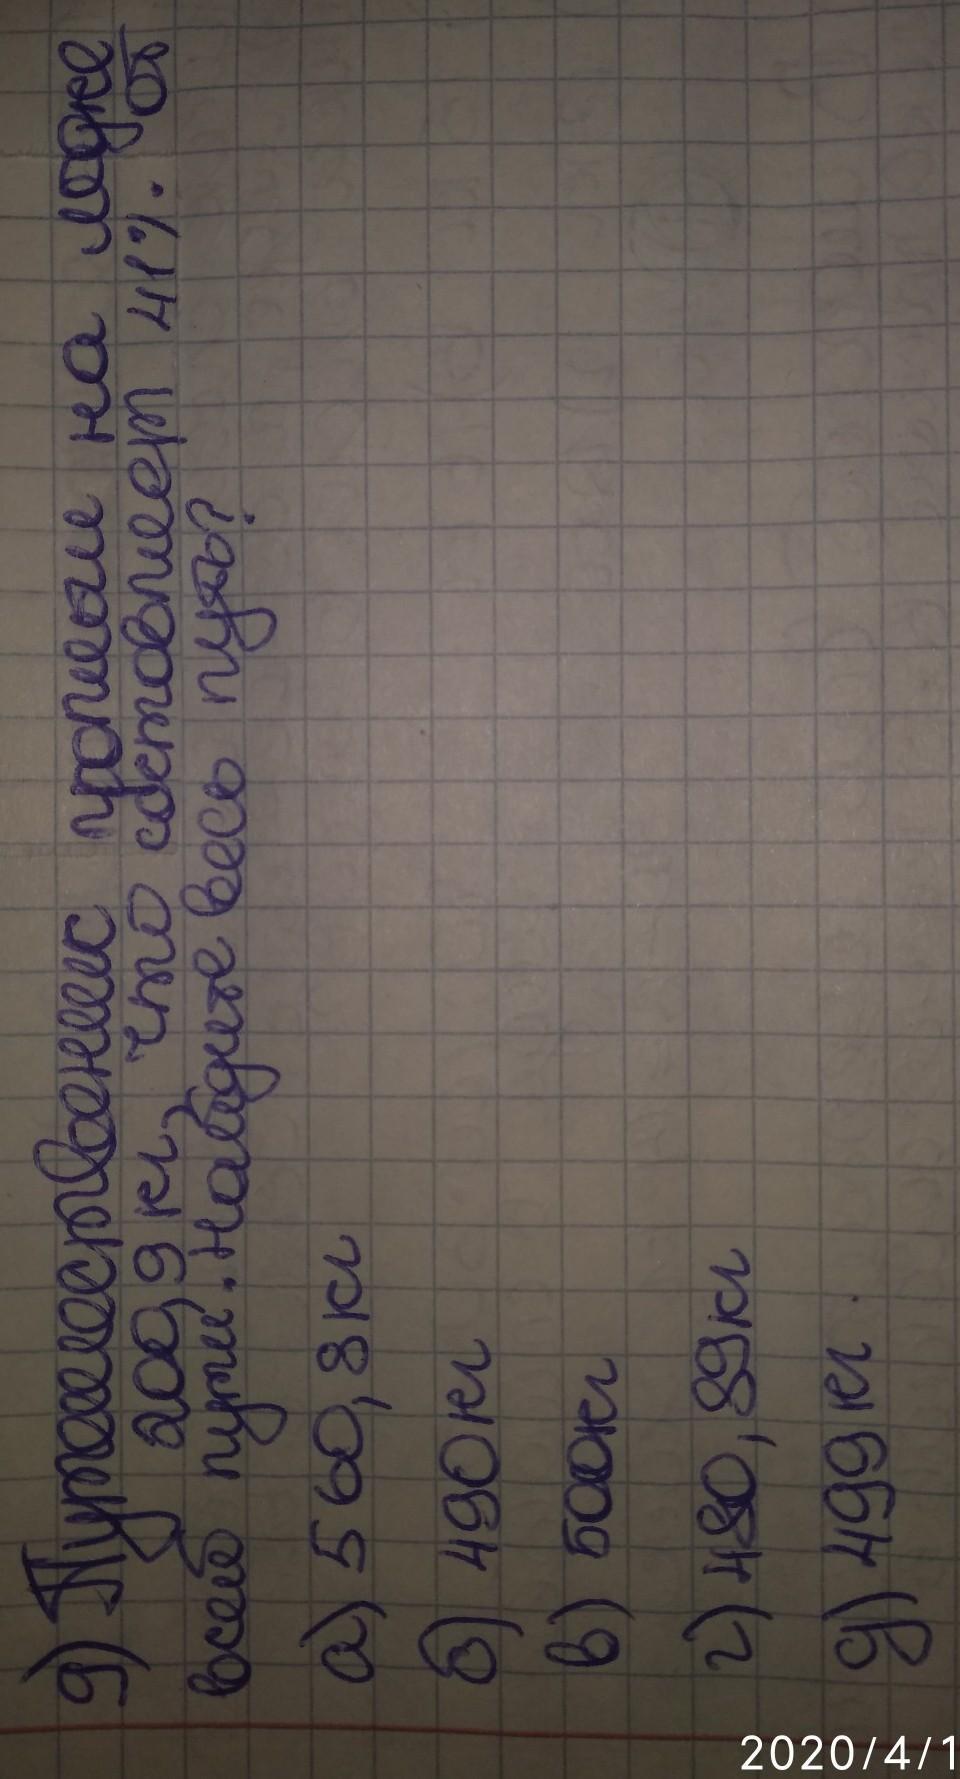 9) Путешественик проплыл на лодке
200,9 км, что составляет 41%. от
всей пути. Найдите весь путь?
а) 560,8 км
б) 490 км
в) 500 км
г) 480,89 км
д) 499 км
2020/4/1